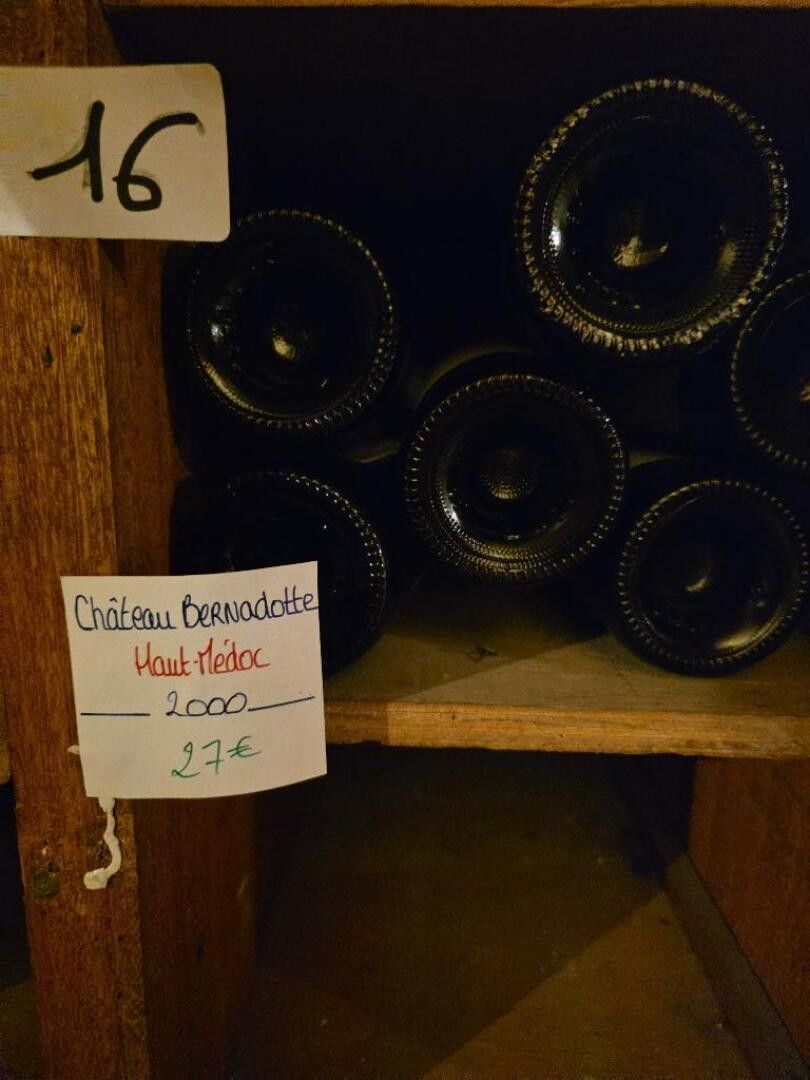 16
Château BERNAdotte
Haut-Médoc
2000
27€